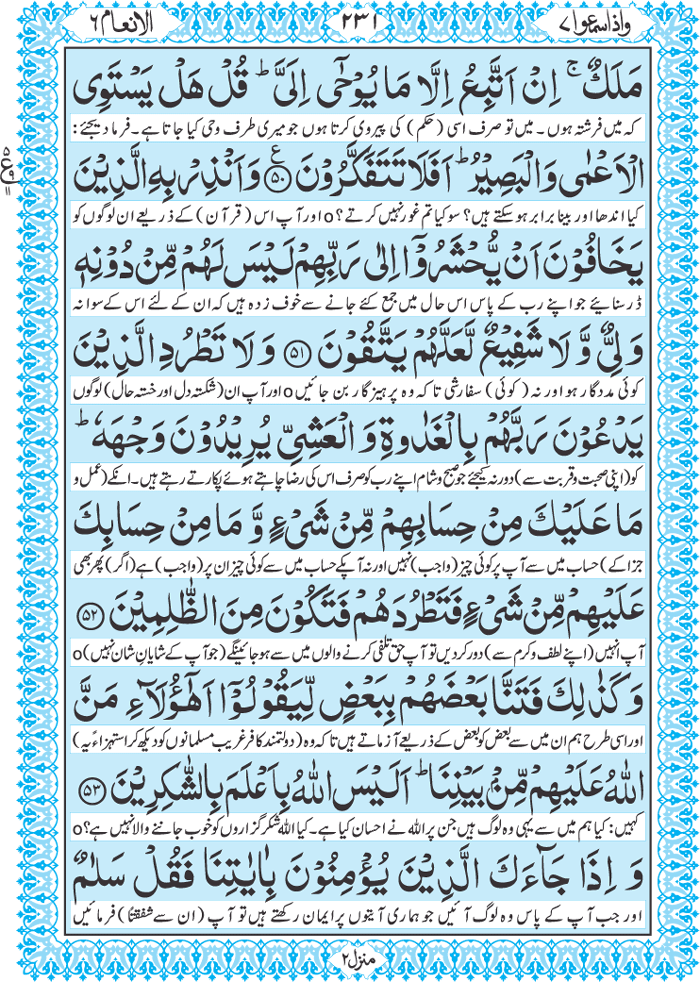 واذا سمعوا ٧
٢٣١
الانعام ٦
مَلَكٌ ۚ اِنْ اَتَّبِعُ اِلَّا مَا يُوْحٰۤى اِلَيَّ ؕ قُلْ هَلْ يَسْتَوِي
کہ میں فرشتہ ہوں۔ میں تو صرف اسی (حکم) کی پیروی کرتا ہوں جو میری طرف وحی کیا جاتا ہے۔ فرما دیجئے:
الْاَعْمٰى وَالْبَصِيْرُ ؕ اَفَلَا تَتَفَكَّرُوْنَ ﴿٥٠﴾ وَاَنْذِرْ بِهِ الَّذِيْنَ
کیا اندھا اور بینا برابر ہو سکتے ہیں؟ سو کیا تم غور نہیں کرتے؟o اور آپ اس (قرآن) کے ذریعے ان لوگوں کو
يَخَافُوْنَ اَنْ يُّحْشَرُوْۤا اِلٰى رَبِّهِمْ لَيْسَ لَهُمْ مِّنْ دُوْنِهٖ
ڈر سنائیے جو اپنے رب کے پاس اس حال میں جمع کئے جانے سے خوف زدہ ہیں کہ ان کے لئے اس کے سوا نہ
وَلِيٌّ وَّ لَا شَفِيْعٌ لَّعَلَّهُمْ يَتَّقُوْنَ ﴿٥١﴾ وَ لَا تَطْرُدِ الَّذِيْنَ
کوئی مددگار ہو اور نہ (کوئی) سفارشی تاکہ وہ پرہیزگار بن جائیںo اور آپ ان (شکستہ دل اور خستہ حال) لوگوں
يَدْعُوْنَ رَبَّهُمْ بِالْغَدٰوةِ وَ الْعَشِيِّ يُرِيْدُوْنَ وَجْهَهٗ ؕ
کو (اپنی صحبت و قربت سے) دور نہ کیجئے جو صبح و شام اپنے رب کو صرف اس کی رضا چاہتے ہوئے پکارتے رہتے ہیں۔ انکے (عمل و
مَا عَلَيْكَ مِنْ حِسَابِهِمْ مِّنْ شَيْءٍ وَّ مَا مِنْ حِسَابِكَ
جزا کے) حساب میں سے آپ پر کوئی چیز (واجب) نہیں اور نہ آپکے حساب میں سے کوئی چیز ان پر (واجب) ہے (اگر) پھر بھی
عَلَيْهِمْ مِّنْ شَيْءٍ فَتَطْرُدَهُمْ فَتَكُوْنَ مِنَ الظّٰلِمِيْنَ ﴿٥٢﴾
آپ انہیں (اپنے لطف و کرم سے) دور کر دیں تو آپ حق تلفی کرنے والوں میں سے ہو جائینگے (جو آپ کے شایانِ شان نہیں)o
وَ كَذٰلِكَ فَتَنَّا بَعْضَهُمْ بِبَعْضٍ لِّيَقُوْلُوْۤا اَهٰۤؤُلَآءِ مَنَّ
اور اسی طرح ہم ان میں سے بعض کو بعض کے ذریعے آزماتے ہیں تاکہ وہ (دولتمند کافر غریب مسلمانوں کو دیکھ کر استہزاءً یہ)
اللّٰهُ عَلَيْهِمْ مِّنْۢ بَيْنِنَا ؕ اَلَيْسَ اللّٰهُ بِاَعْلَمَ بِالشّٰكِرِيْنَ ﴿٥٣﴾
کہیں: کیا ہم میں سے یہی وہ لوگ ہیں جن پر اللہ نے احسان کیا ہے۔ کیا اللہ شکر گزاروں کو خوب جاننے والا نہیں ہے؟o
وَ اِذَا جَآءَكَ الَّذِيْنَ يُؤْمِنُوْنَ بِاٰيٰتِنَا فَقُلْ سَلٰمٌ
اور جب آپ کے پاس وہ لوگ آئیں جو ہماری آیتوں پر ایمان رکھتے ہیں تو آپ (ان سے شفقتًا) فرمائیں
منزل ٢